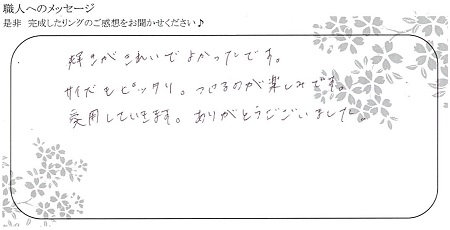 職人へのメッセージ
是非 完成したリングのご感想をお聞かせください♪
輝きがきれいでよかったです。
サイズもピッタリ。つけるのが楽しみです。
愛用していきます。ありがとうございました。